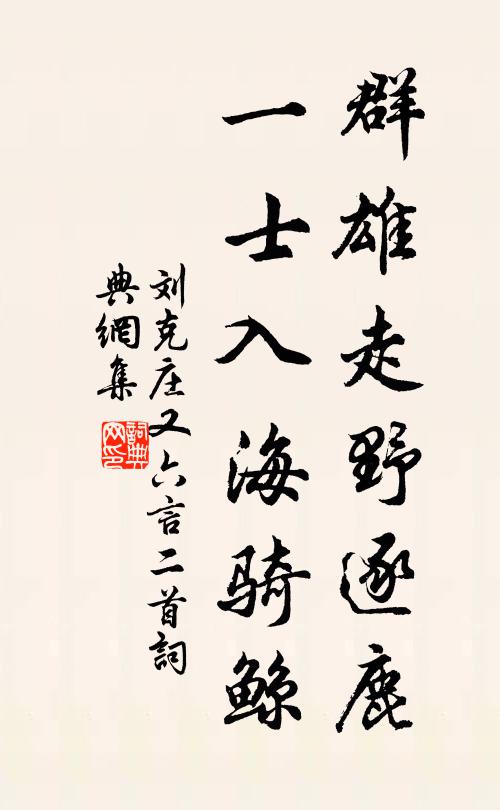 群雄走野逐鹿
一士入海骑鲸
刘克庄又六言二首詞
典網集
詞典
网印